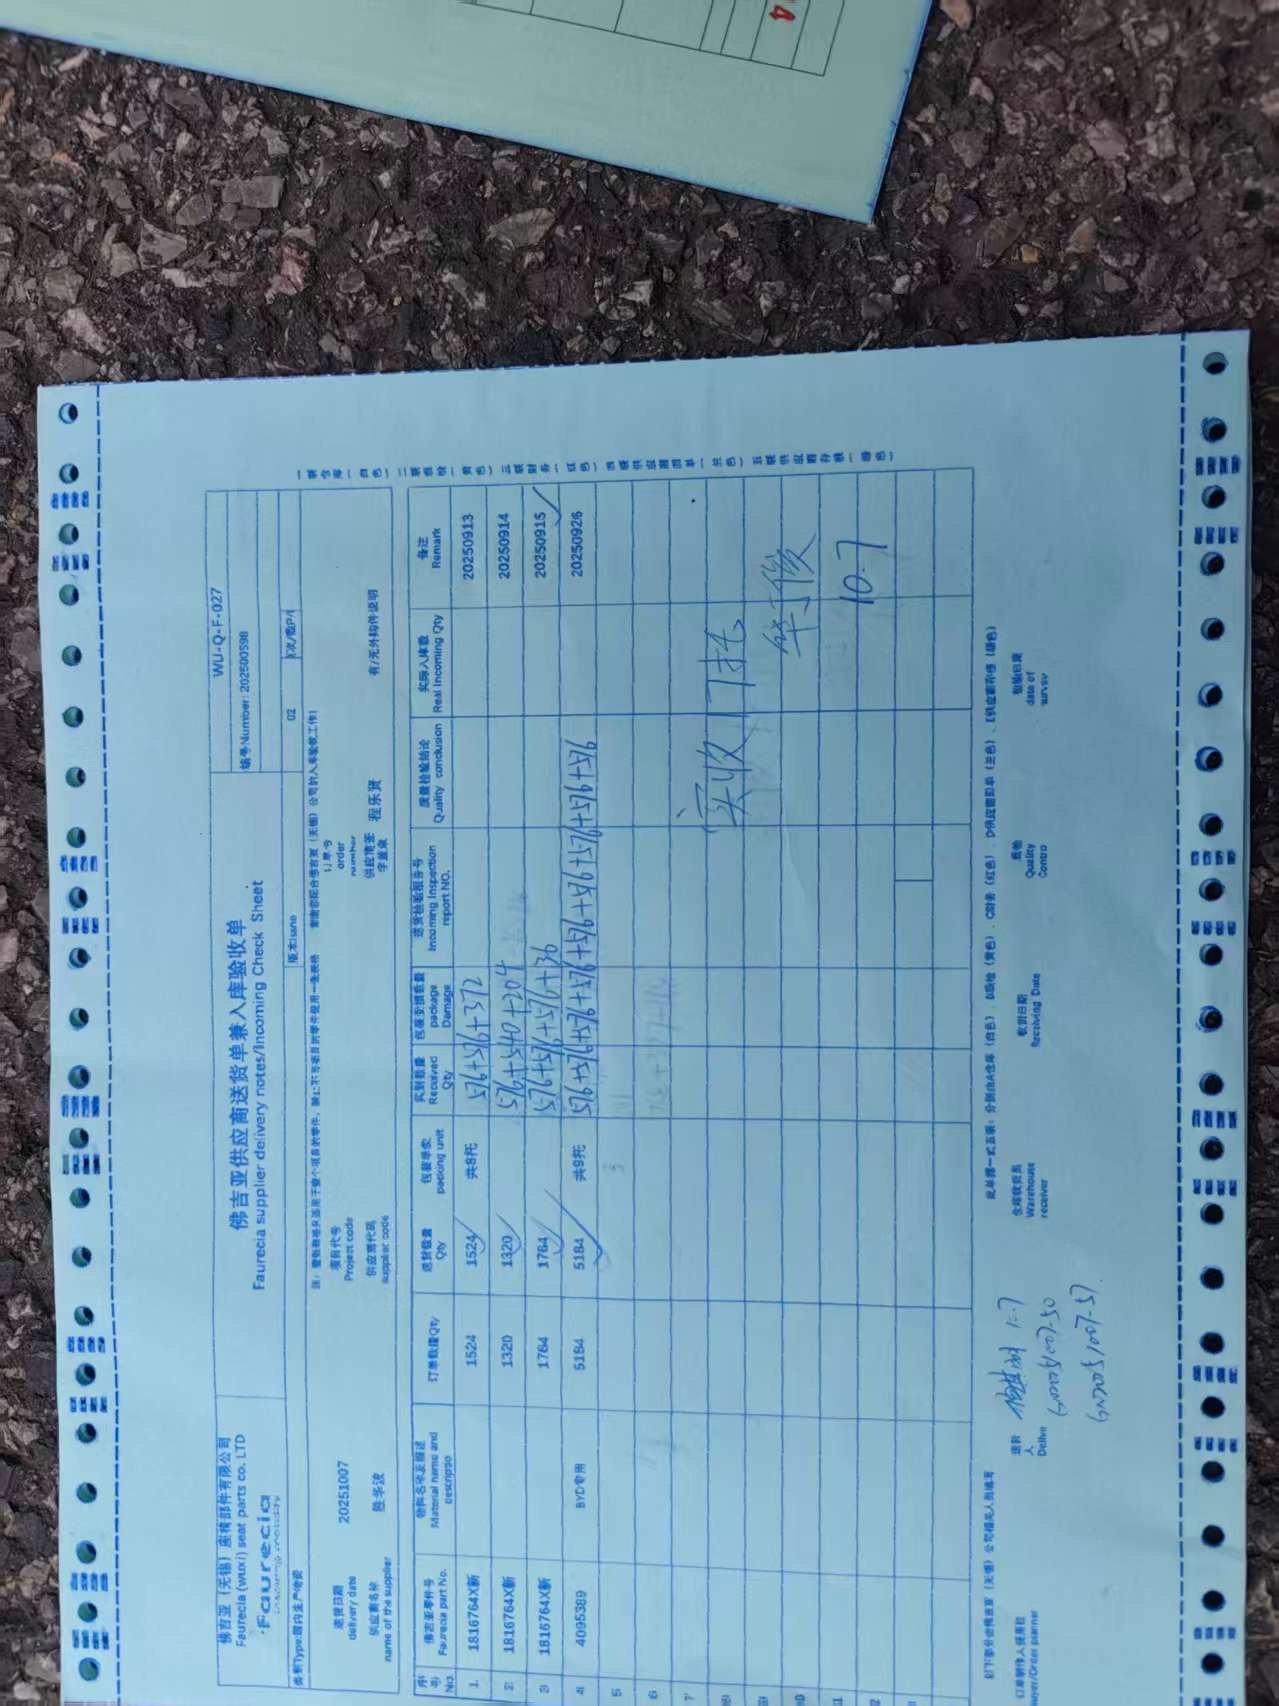 4
佛吉亚（无锡）座椅部件有限公司
Faurecia (wuxi) seat parts co. LTD
faurecia
佛吉亚供应商送货单兼入库验收单
Faurecia supplier delivery notes/Incoming Check Sheet
WU-Q-F-027
编号Number: 202500598
类别Type:国内生产物资
版本Issue
02
页次/箱P/1
送货日期
delivery date
20251007
项目代号
Project code
订单号
order
number
供应商名称
name of the supplier
胜华波
供应商代码
supplier code
供应商签
字盖章
程乐贤
有/无外购件说明
序号 No. 佛吉亚零件号 Faurecia part No. 物料名称及描述 Material name and descriptio 订单数量Qty 送到数量 Qty 包装单位 packing unit 实到数量 Received Qty 包装受损数量 package Damage 送货检验报告号 Incoming Inspection report NO. 质量检验结论 Quality conclusion 实际入库数 Real Incoming Qty 备注 Remark
1 1816764X新 1524 1524 共8托 576+576+372 20250913
2 1816764X新 1320 1320 576+540+204 20250914
3 1816764X新 1764 1764 576+576+576+36 20250915
4 4095389 BYD专用 5184 5184 共9托 576+576+576+576+576+576+576+576+576 20250926
5
6
7
实收17托
华俊
10-7
此单据一式五联：分别由A仓库（白色）、B质检（黄色）、C财务（红色）、D供应商回单（兰色）、E供应商存根（绿色）
以下部分由佛吉亚（无锡）公司相关人员填写
送货
人
Delive
仓库收货员
Warehouse
receiver
收货日期
Receiving Date
质检
Quality
Contro
检验日期
date of
survey